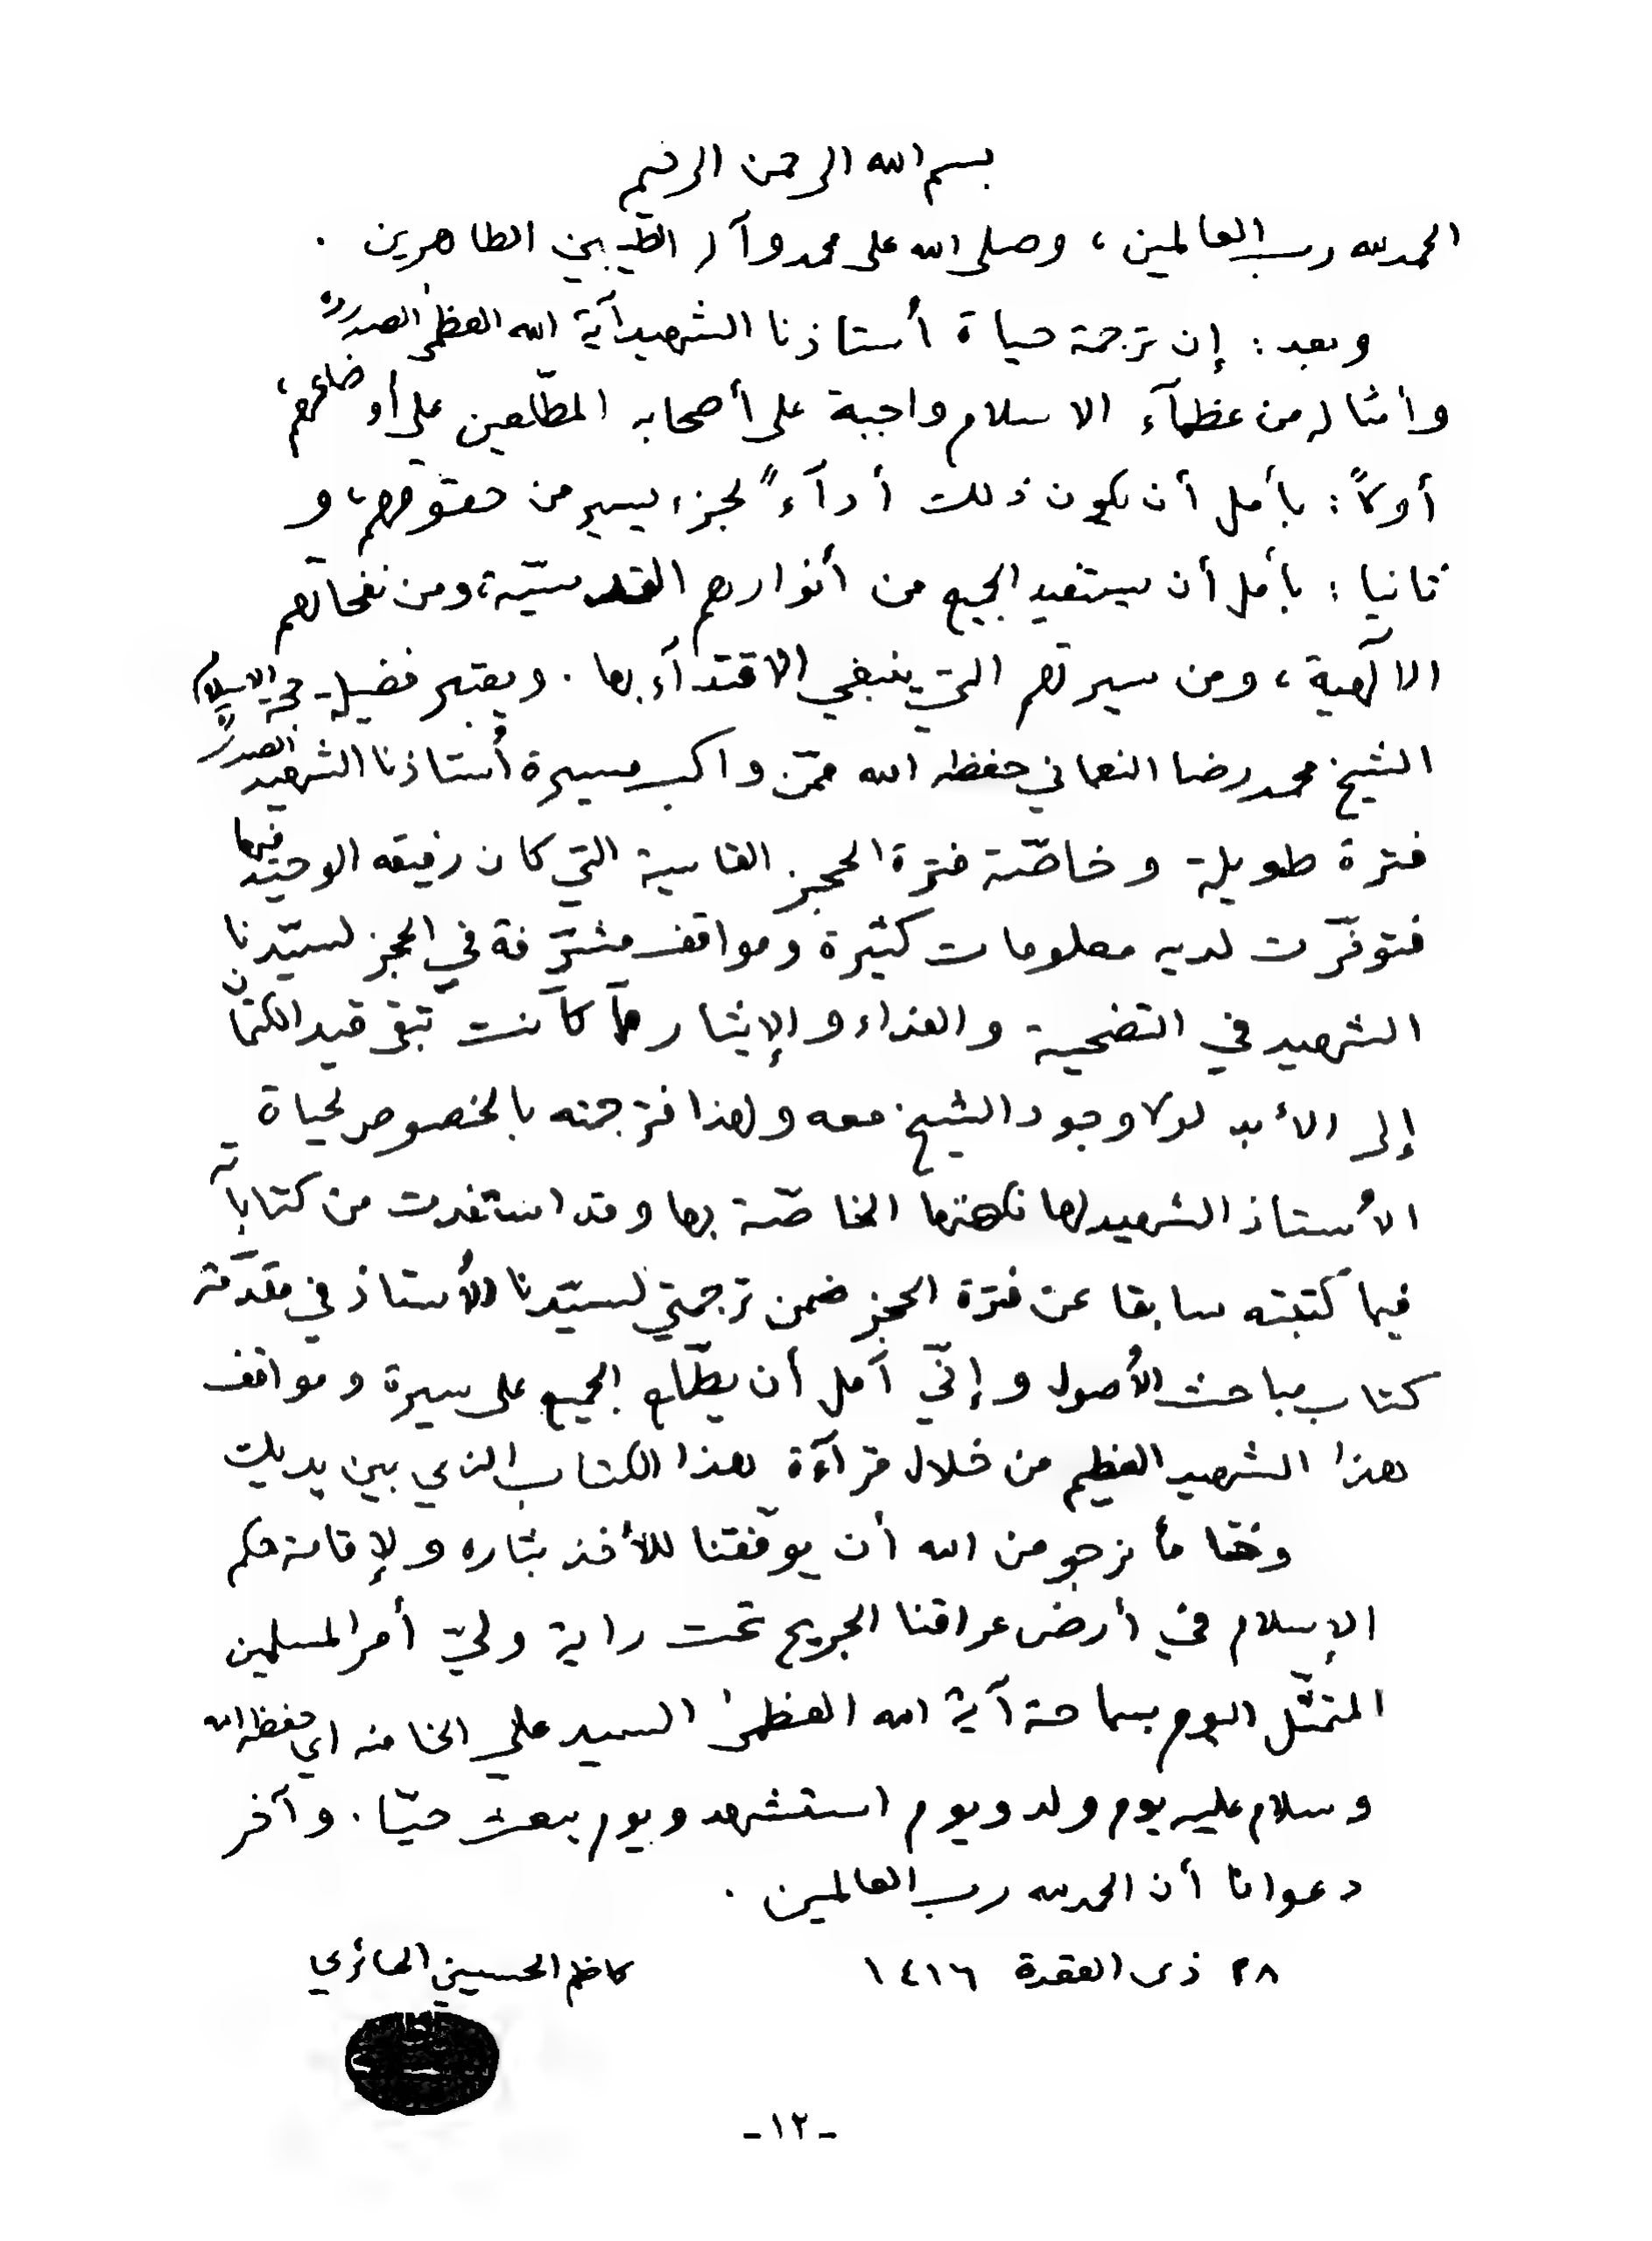 بسم الله الرحمن الرحيم
الحمد لله رب العالمين ، وصلى الله على محمد وآله الطيّبين الطاهرين .
وبعد : إن ترجمة حياة أُستاذنا الشهيد آية الله العظمىٰ الصدر
وامثاله من عظمآء الاسلام واجبة على أصحابه المطّلعين على أوضاعهم ،
أولاً : بأمل أن يكون ذلك أدآءً لجزء يسير من حقوقهم ، و
ثانيا : بأمل أن يستفيد الجميع من أنوارهم القدسيّة ، ومن نفحاتهم
الالٓهية ، ومن سيرتهم التي ينبغي الاقتدآء بها . ويعتبر فضيلة حجة الاسلام
الشيخ محمد رضا النعماني حفظه الله ممّن واكب مسيرة أُستاذنا الشهيد الصدر
فترة طويلة وخاصّة فترة الحجز القاسية التي كان رفيقه الوحيد فيها
فتوفّرت لديه معلومات كثيرة ومواقف مشرّفة في الحجز لسيّدنا
الشهيد في التضحية والفداء والإيثار ممّا كانت تبقى قيد الكتمان
إلى الأبد لولا وجود الشيخ معه ولهذا فترجمته بالخصوص لحياة
الأُستاذ الشهيد لها نكهتها الخاصّة بها وقد استفدت من كتاباته
فيما كتبته سابقا عن فترة الحجز ضمن ترجمتي لسيّدنا الأُستاذ في مقدّمة
كتاب مباحث الأُصول وإنّي آمل أن يطّلع الجميع على سيرة ومواقف
هذا الشهيد العظيم من خلال قرآءة هذا الكتاب الذي بين يديك
وختاماً نرجو من الله أن يوفّقنا للأخذ بثاره ولإقامة حكم
الإسلام في أرض عراقنا الجريح تحت راية وليّ أمر المسلمين
المتمثّل اليوم بسماحة آية الله العظمىٰ السيد علي الخامنه اي حفظه الله
وسلام عليه يوم ولد ويوم استشهد ويوم يبعث حيّا . وآخر
دعوانا أن الحمد لله رب العالمين .
٢٨ ذى القعدة ١٤١٦ كاظم الحسيني الحائري
-١٢-